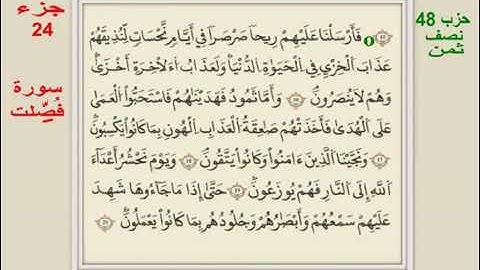 حزب 48
نصف
ثمن
جزء
24
سورة
فُصِّلت
فَأَرْسَلْنَا عَلَيْهِمْ رِيحاً صَرْصَراً فِي أَيَّامٍ نَّحْسَاتٍ لِّنُذِيقَهُمْ
عَذَابَ الْخِزْيِ فِي الْحَيَوٰةِ الدُّنْيَا وَلَعَذَابُ اُ۬لَاخِرَةِ أَخْزَىٰ
وَهُمْ لَا يُنصَرُونَ وَأَمَّا ثَمُودُ فَهَدَيْنَٰهُمْ فَاسْتَحَبُّواْ الْعَمَىٰ
عَلَى الْهُدَىٰ فَأَخَذَتْهُمْ صَٰعِقَةُ الْعَذَابِ الْهُونِ بِمَا كَانُواْ يَكْسِبُونَ
وَنَجَّيْنَا الَّذِينَ ءَامَنُواْ وَكَانُواْ يَتَّقُونَ وَيَوْمَ نَحْشُرُ أَعْدَآءَ
اللَّهِ إِلَى النَّارِ فَهُمْ يُوزَعُونَ حَتَّىٰ إِذَا مَا جَآءُوهَا شَهِدَ
عَلَيْهِمْ سَمْعُهُمْ وَأَبْصَٰرُهُمْ وَجُلُودُهُم بِمَا كَانُواْ يَعْمَلُونَ